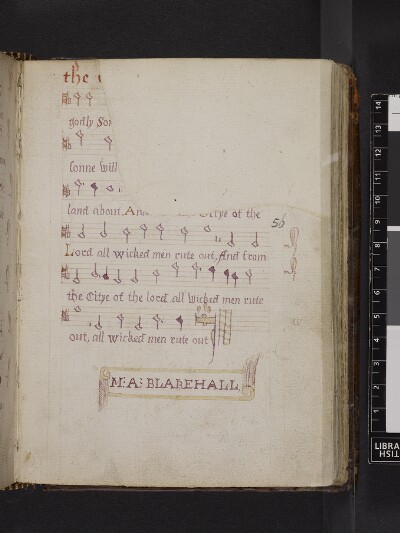 the
godly Son
sonne will
land about. And Citye of the
50
Lord all wicked men rute out, And from
the Citye of the lord all wicked men rute
out, all wicked men rute out
M: A: BLAREHALL
14
13
12
11
10
9
8
7
6
5
4
3
2
1
LIBRA